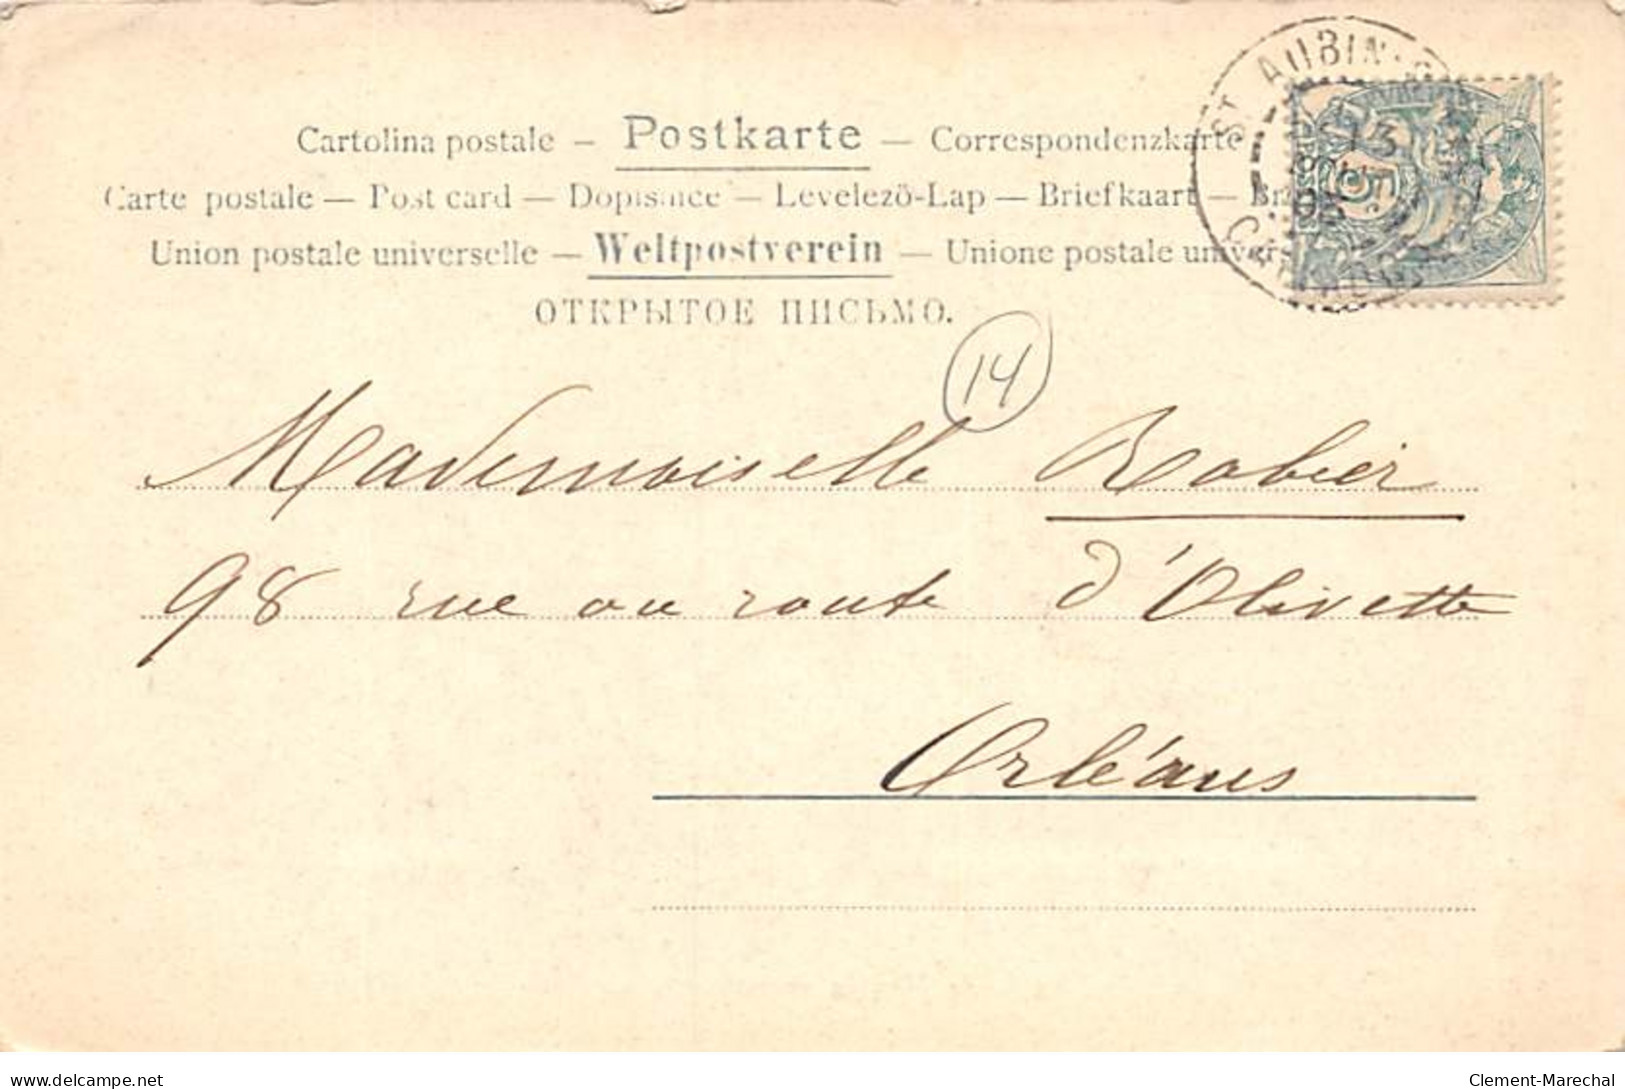 Cartolina postale — Postkarte — Correspondenzkarte
Carte postale — Post card — Dopisnice — Levelezö-Lap — Briefkaart —
Union postale universelle — Weltpostverein — Unione postale univers
ОТКРЫТОЕ ПИСЬМО.
ST AUBIN
13
14
Mademoiselle Robier
98 rue ou route d'Olivette
Orléans
https://www.delcampe.net
Clement-Marechal